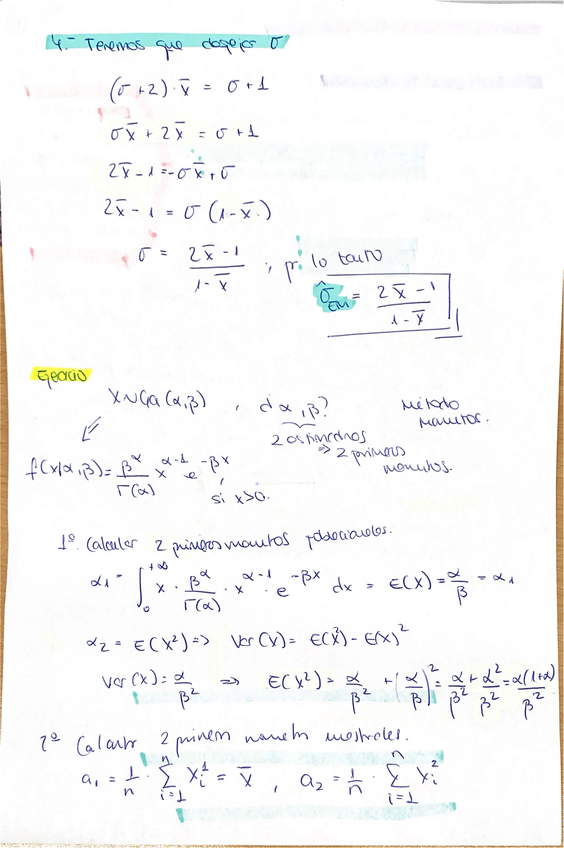 4.- Tenemos que despejar σ
(σ+2)·x̄ = σ+1
σx̄ + 2x̄ = σ+1
2x̄ - 1 = -σx̄ + σ
2x̄ - 1 = σ(1-x̄)
σ = (2x̄ - 1)/(1-x̄) ; por lo tanto
σ̂_EM = (2x̄ - 1)/(1-x̄)
Ejercicio
X∼Ga(α,β) , ¿α,β? Método momentos.
2 estimadores
⇒ 2 primeros momentos.
f(x/α,β) = β^α/Γ(α) x^(α-1) e^(-βx) , si x>0.
1º. Calcular 2 primeros momentos poblacionales.
α₁ = ∫₀^(+∞) x · β^α/Γ(α) · x^(α-1) · e^(-βx) dx = E(X) = α/β = α₁
α₂ = E(X²) ⇒ Var(X) = E(X²) - E(X)²
Var(X) = α/β² ⇒ E(X²) = α/β² + (α/β)² = α/β² + α²/β² = α(1+α)/β²
2º Calcular 2 primeros momentos muestrales.
a₁ = 1/n · Σ_(i=1)^n X_i^1 = x̄ , a₂ = 1/n · Σ_(i=1)^n X_i²